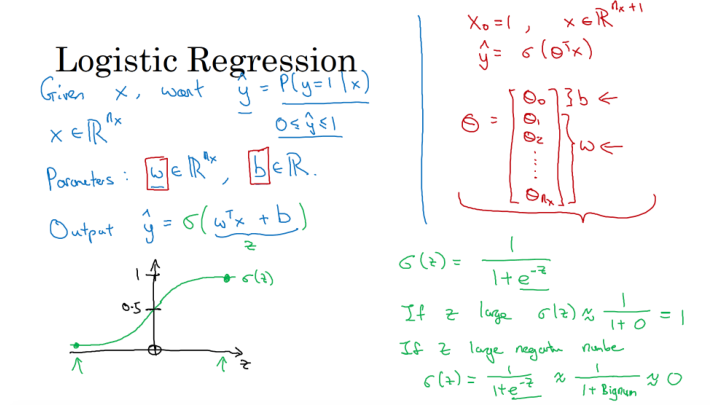 Logistic Regression
Given x, want ŷ = P(y=1|x)
x ∈ ℝ^{n_x}
0 ≤ ŷ ≤ 1
Parameters: w ∈ ℝ^{n_x}, b ∈ ℝ.
Output ŷ = σ(w^T x + b)
z
1
σ(z)
0.5
z
x_0 = 1, x ∈ ℝ^{n_x+1}
ŷ = σ(θ^T x)
θ = [θ_0 } b ←
θ_1
θ_2 } w ←
⋮
θ_{n_x}]
σ(z) = 1/(1+e^{-z})
If z large σ(z) ≈ 1/(1+0) = 1
If z large negative number
σ(z) = 1/(1+e^{-z}) ≈ 1/(1+Bignum) ≈ 0